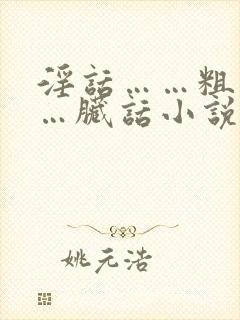 淫話……粗
…臟話小說
姚元浩